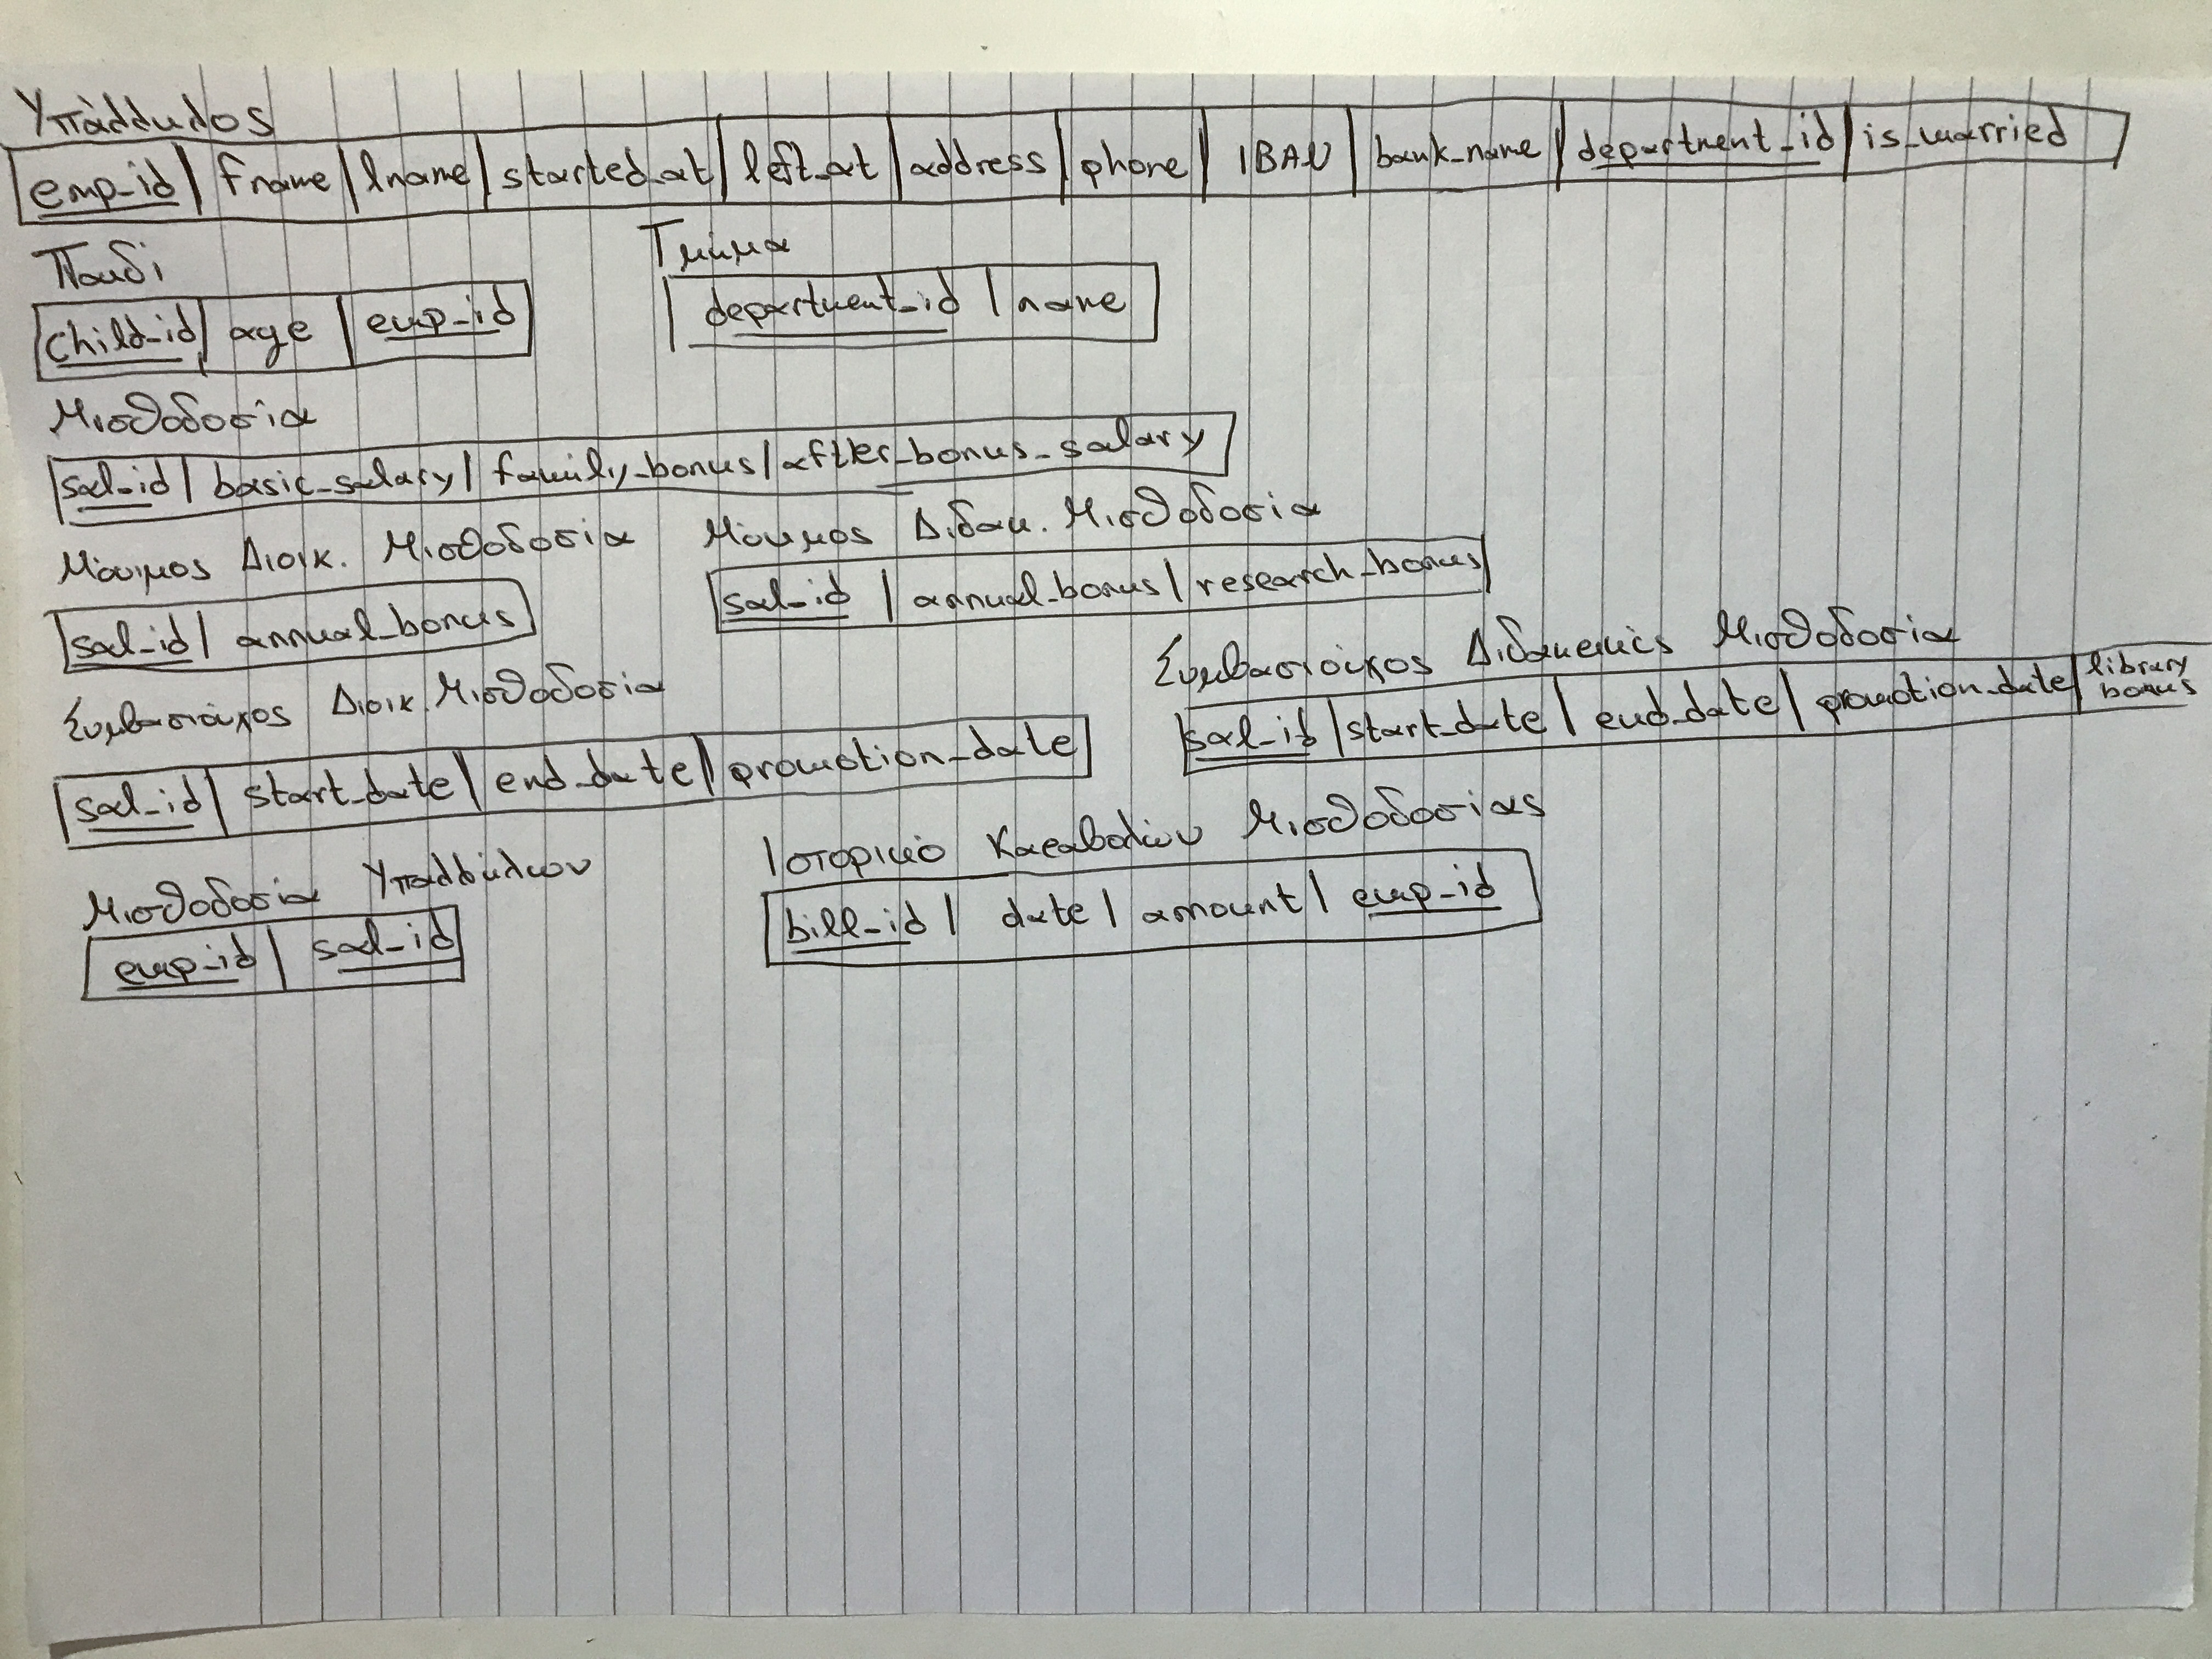 Υπάλληλος
emp_id | fname | lname | started_at | left_at | address | phone | IBAN | bank_name | department_id | is_married
Παιδί
child_id | age | emp_id
Τμήμα
department_id | name
Μισθοδοσία
sal_id | basic_salary | family_bonus | after_bonus_salary
Μόνιμος Διοικ. Μισθοδοσία
sal_id | annual_bonus
Μόνιμος Διδακ. Μισθοδοσία
sal_id | annual_bonus | research_bonus
Συμβασιούχος Διοικ. Μισθοδοσία
sal_id | start_date | end_date | promotion_date
Συμβασιούχος Διδακτικής Μισθοδοσία
sal_id | start_date | end_date | promotion_date | library bonus
Μισθοδοσία Υπαλλήλων
emp_id | sal_id
Ιστορικό Καταβολών Μισθοδοσίας
bill_id | date | amount | emp_id